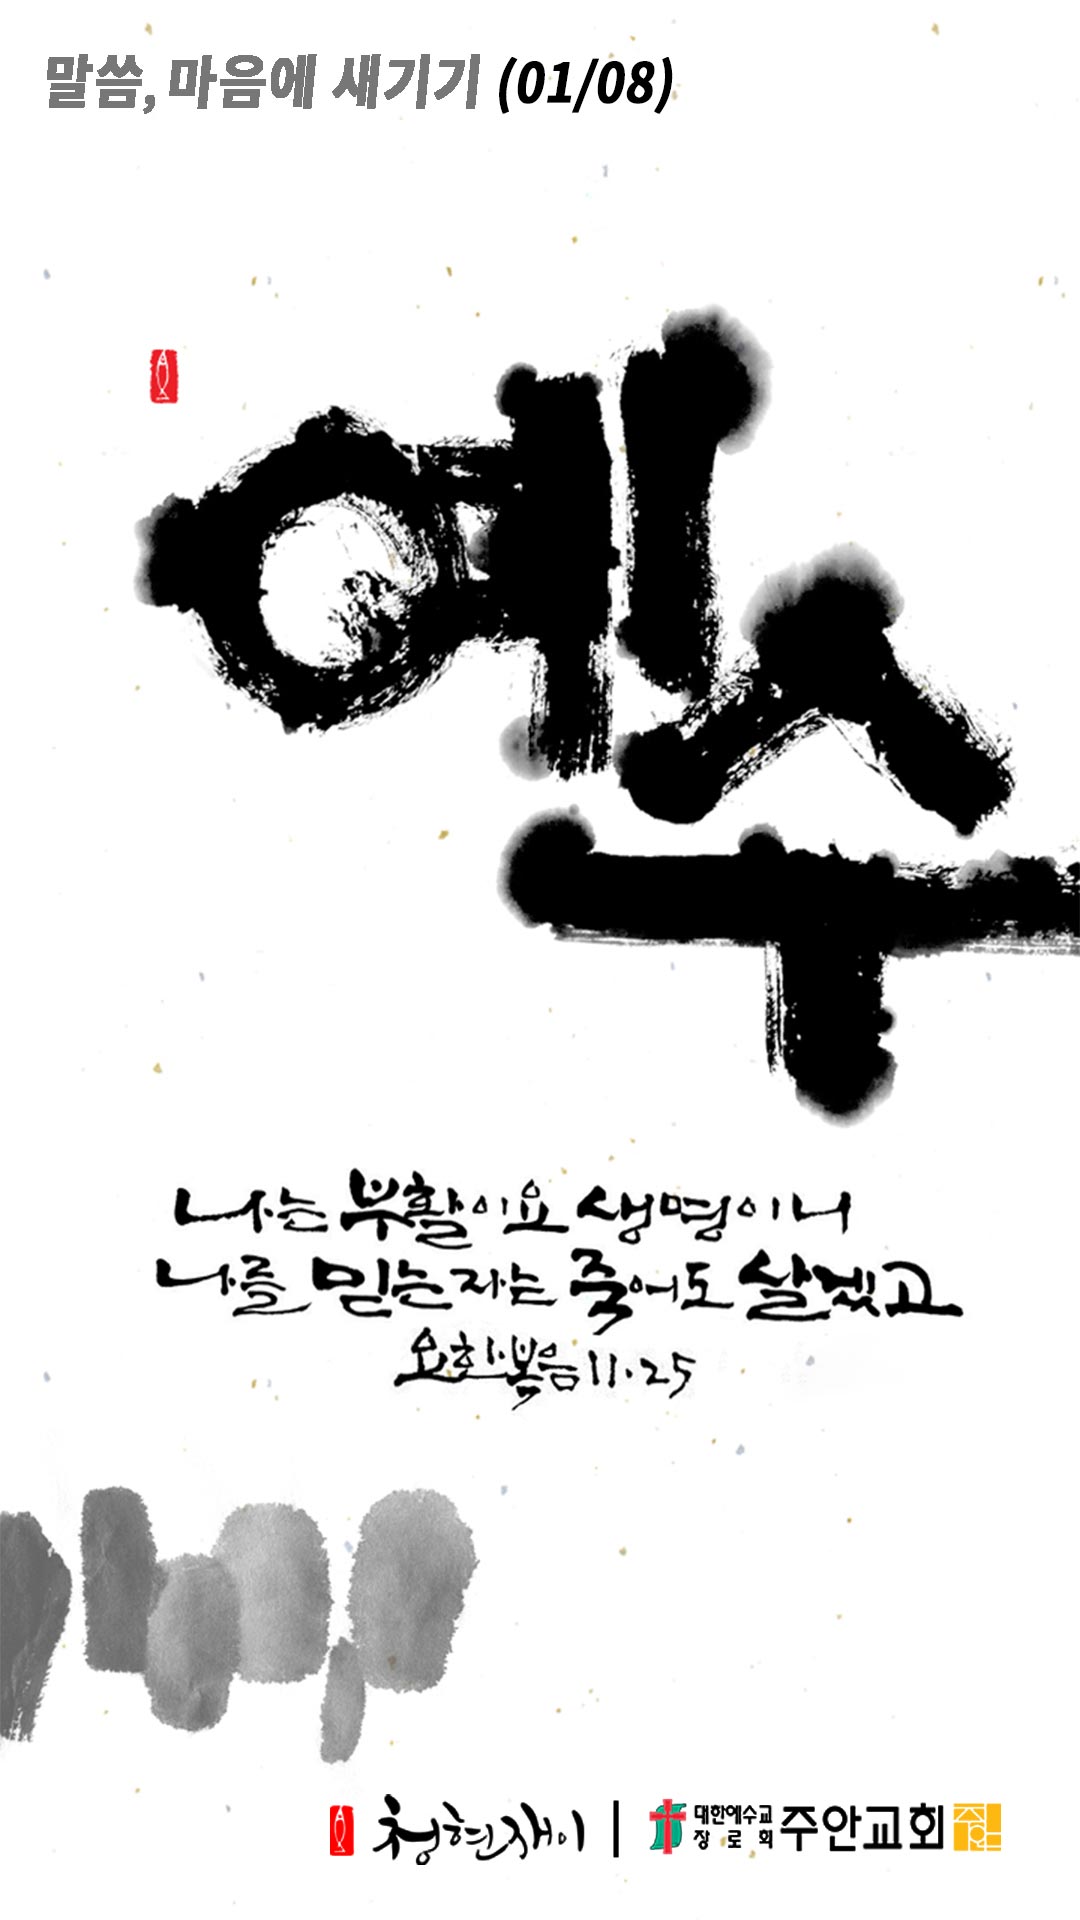 말씀, 마음에 새기기 (01/08)
예수
나는 부활이요 생명이니
나를 믿는 자는 죽어도 살겠고
요한복음 11·25
청현재이 | 대한예수교장로회 주안교회 주안